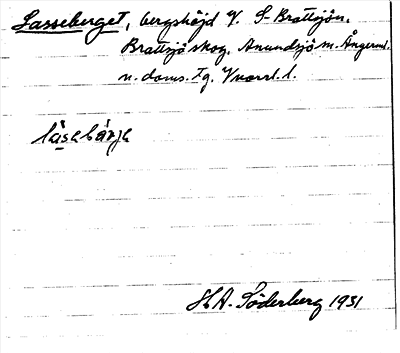 Lasseberget, bergshöjd V S. Brattsjön.
Brattsjö skog, Anundsjö sn. Ångerml.
n. doms. Tg. Vnorrl. l.
H A. Söderberg 1931